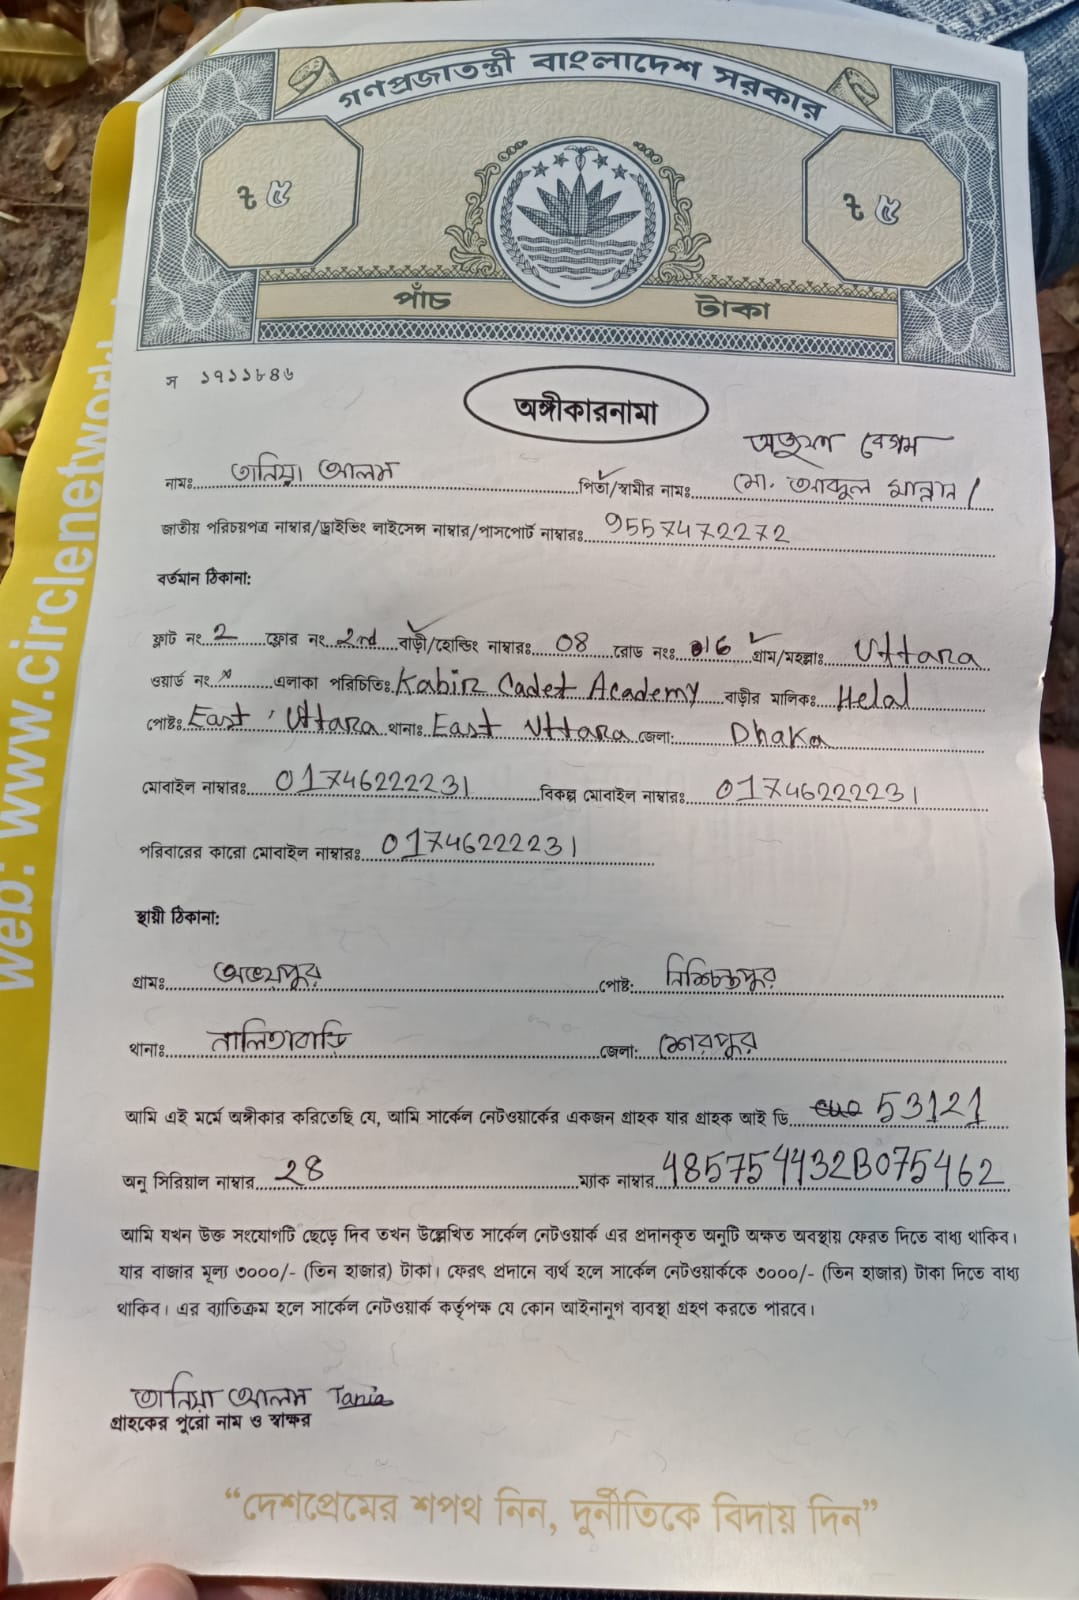 গণপ্রজাতন্ত্রী বাংলাদেশ সরকার
৳ ৫ ৳ ৫
পাঁচ টাকা
স ১৭১১৮৪৬
অঙ্গীকারনামা
বেগম
নামঃ তানিয়া আলম পিতা/স্বামীর নামঃ মো. আব্দুল মান্নান /
জাতীয় পরিচয়পত্র নাম্বার/ড্রাইভিং লাইসেন্স নাম্বার/পাসপোর্ট নাম্বারঃ 9557472272
বর্তমান ঠিকানা:
ফ্লাট নং 2 ফ্লোর নং 2nd বাড়ী/হোল্ডিং নাম্বারঃ 08 রোড নংঃ 16 গ্রাম/মহল্লাঃ Uttara
ওয়ার্ড নং x এলাকা পরিচিতিঃ Kabir Cadet Academy বাড়ীর মালিকঃ Helal
পোষ্টঃ East, Uttara থানাঃ East Uttara জেলা: Dhaka
মোবাইল নাম্বারঃ 01746222231 বিকল্প মোবাইল নাম্বারঃ 01746222231
পরিবারের কারো মোবাইল নাম্বারঃ 01746222231
স্থায়ী ঠিকানা:
গ্রামঃ অভয়পুর পোষ্ট: নিশ্চিন্তপুর
থানাঃ নালিতাবাড়ি জেলা: শেরপুর
আমি এই মর্মে অঙ্গীকার করিতেছি যে, আমি সার্কেল নেটওয়ার্কের একজন গ্রাহক যার গ্রাহক আই ডি 53121
অনু সিরিয়াল নাম্বার 28 ম্যাক নাম্বার 4857544432B075462
আমি যখন উক্ত সংযোগটি ছেড়ে দিব তখন উল্লেখিত সার্কেল নেটওয়ার্ক এর প্রদানকৃত অনুটি অক্ষত অবস্থায় ফেরত দিতে বাধ্য থাকিব।
যার বাজার মূল্য ৩০০০/- (তিন হাজার) টাকা। ফেরৎ প্রদানে ব্যর্থ হলে সার্কেল নেটওয়ার্ককে ৩০০০/- (তিন হাজার) টাকা দিতে বাধ্য
থাকিব। এর ব্যাতিক্রম হলে সার্কেল নেটওয়ার্ক কর্তৃপক্ষ যে কোন আইনানুগ ব্যবস্থা গ্রহণ করতে পারবে।
তানিয়া আলম Tania
গ্রাহকের পুরো নাম ও স্বাক্ষর
“দেশপ্রেমের শপথ নিন, দুর্নীতিকে বিদায় দিন”
web: www.circlenetwork